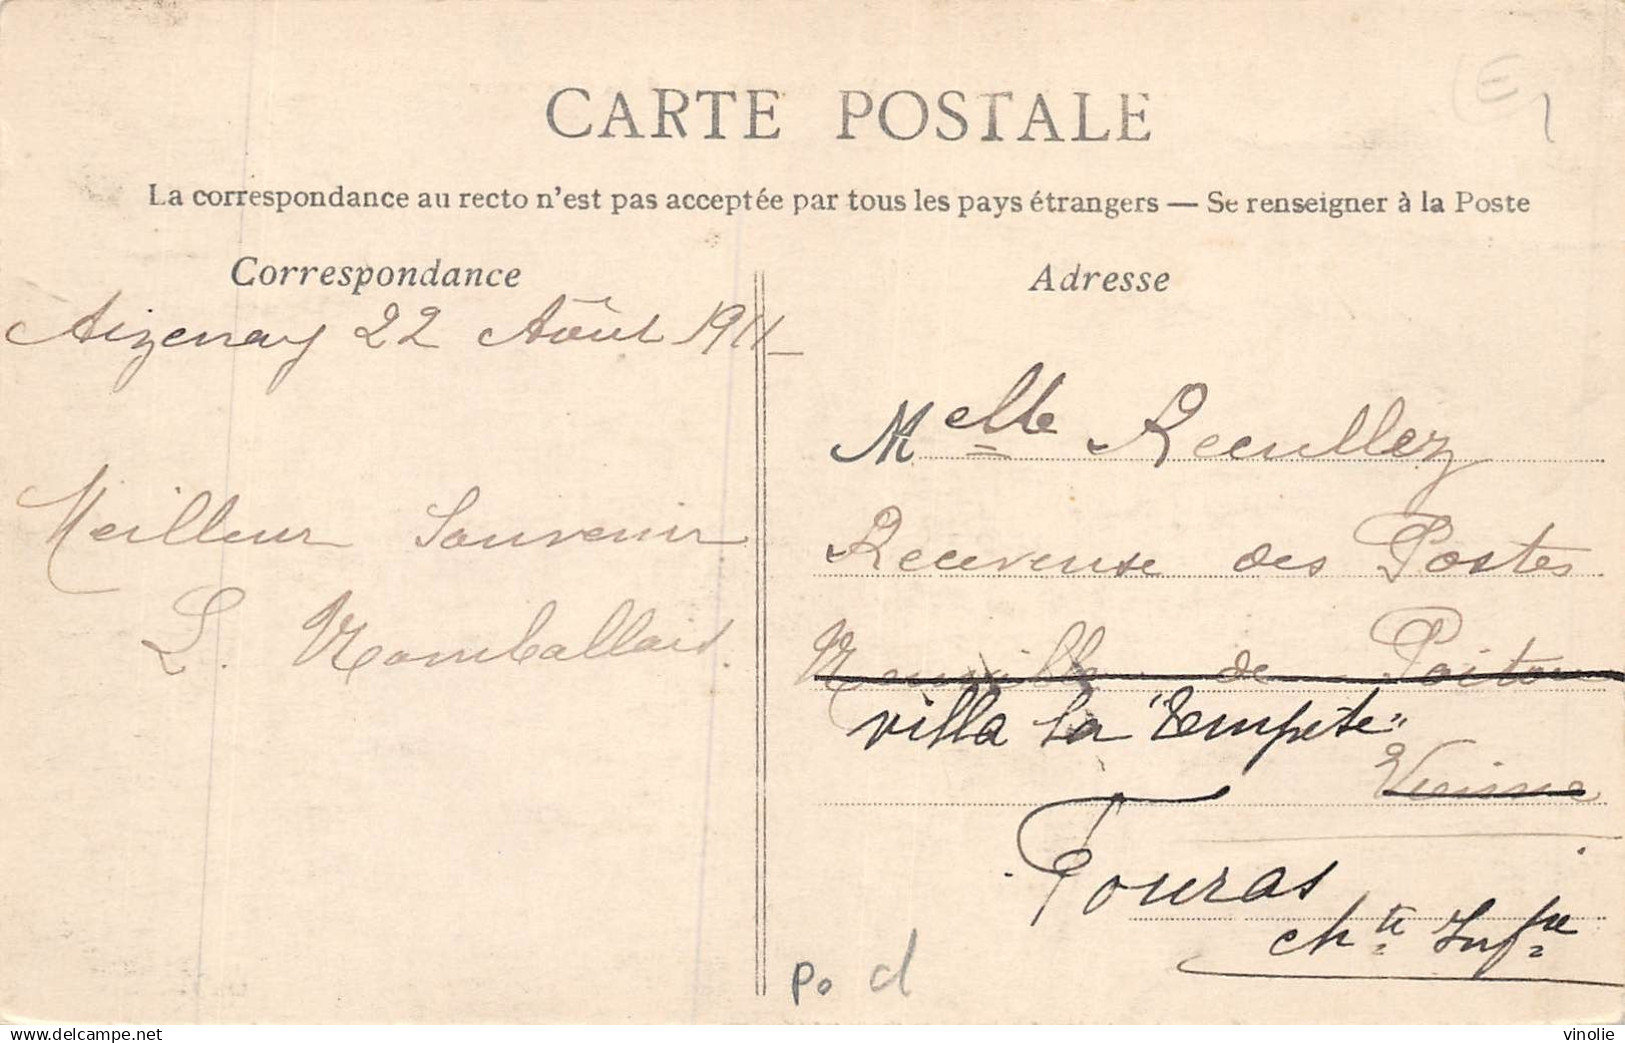 CARTE POSTALE
La correspondance au recto n'est pas acceptée par tous les pays étrangers — Se renseigner à la Poste
Correspondance
Aizenay 22 Août 1911
Meilleur Souvenir
L.
Adresse
Melle
Receveuse des Postes
Neuville de Poitou
villa la "Tempête"
Vienne
Fouras
chte Infre
Po d
E 1
www.delcampe.net
vinolie